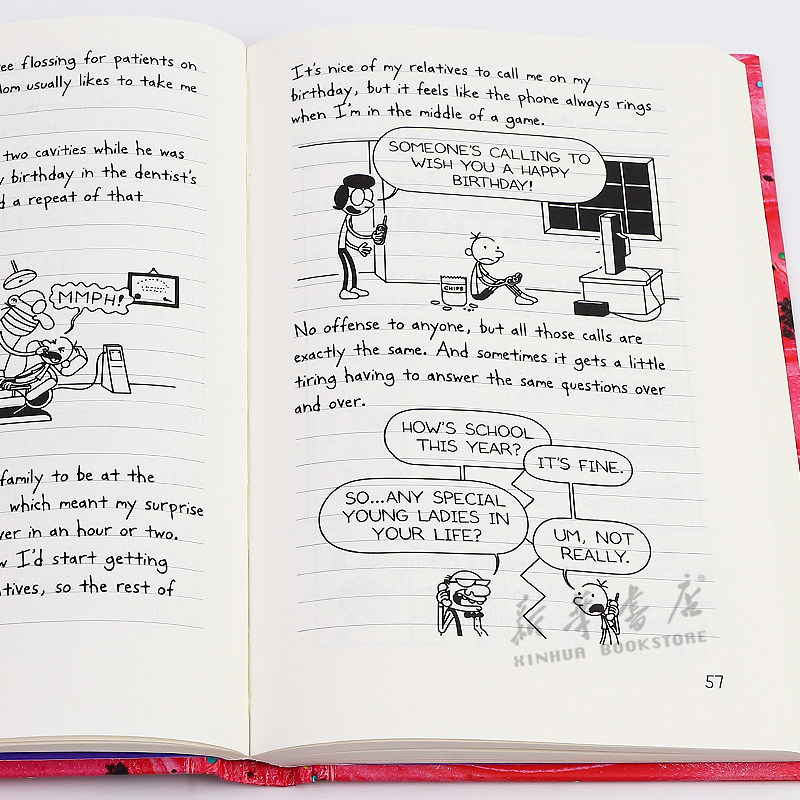 ee flossing for patients on
om usually likes to take me
two cavities while he was
y birthday in the dentist's
d a repeat of that
MMPH!
family to be at the
which meant my surprise
ver in an hour or two.
w I'd start getting
atives, so the rest of
It's nice of my relatives to call me on my
birthday, but it feels like the phone always rings
when I'm in the middle of a game.
SOMEONE'S CALLING TO
WISH YOU A HAPPY
BIRTHDAY!
CHIPS
No offense to anyone, but all those calls are
exactly the same. And sometimes it gets a little
tiring having to answer the same questions over
and over.
HOW'S SCHOOL
THIS YEAR?
IT'S FINE.
SO...ANY SPECIAL
YOUNG LADIES IN
YOUR LIFE?
UM, NOT
REALLY.
新华书店
XINHUA BOOKSTORE
57